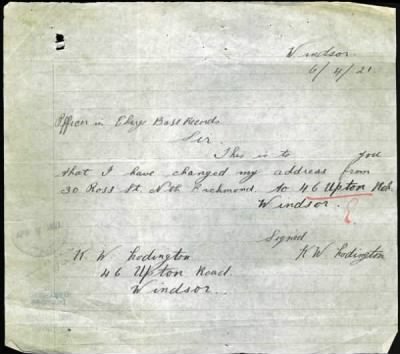 Windsor.
6/4/21.
Officer in Charge Base Records
Sir.
This is to you
that I have changed my address from
30 Ross St. Nth Richmond to 46 Upton Rd.
Windsor.
Signed
K W Lodington
K. W Lodington
46 Upton Road.
Windsor.